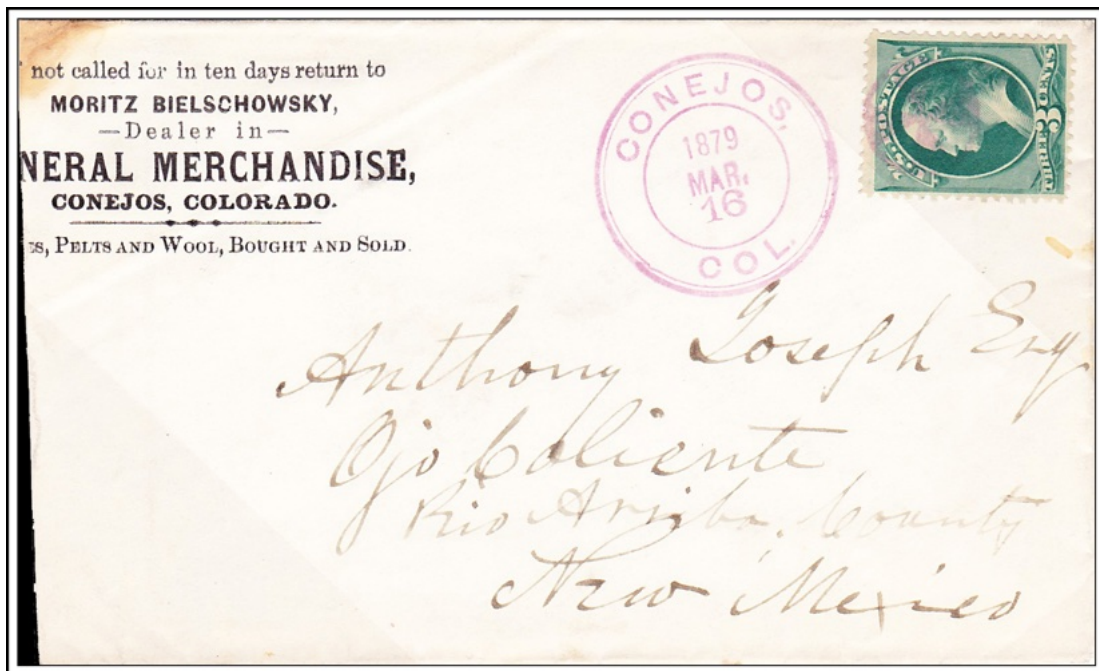 not called for in ten days return to
MORITZ BIELSCHOWSKY,
—Dealer in—
NERAL MERCHANDISE,
CONEJOS, COLORADO.
ES, PELTS AND WOOL, BOUGHT AND SOLD.
CONEJOS,
1879
MAR.
16
COL.
U.S. POSTAGE
THREE 3 CENTS
Anthony Joseph Esq
Ojo Caliente
Rio Arriba, County
New Mexico